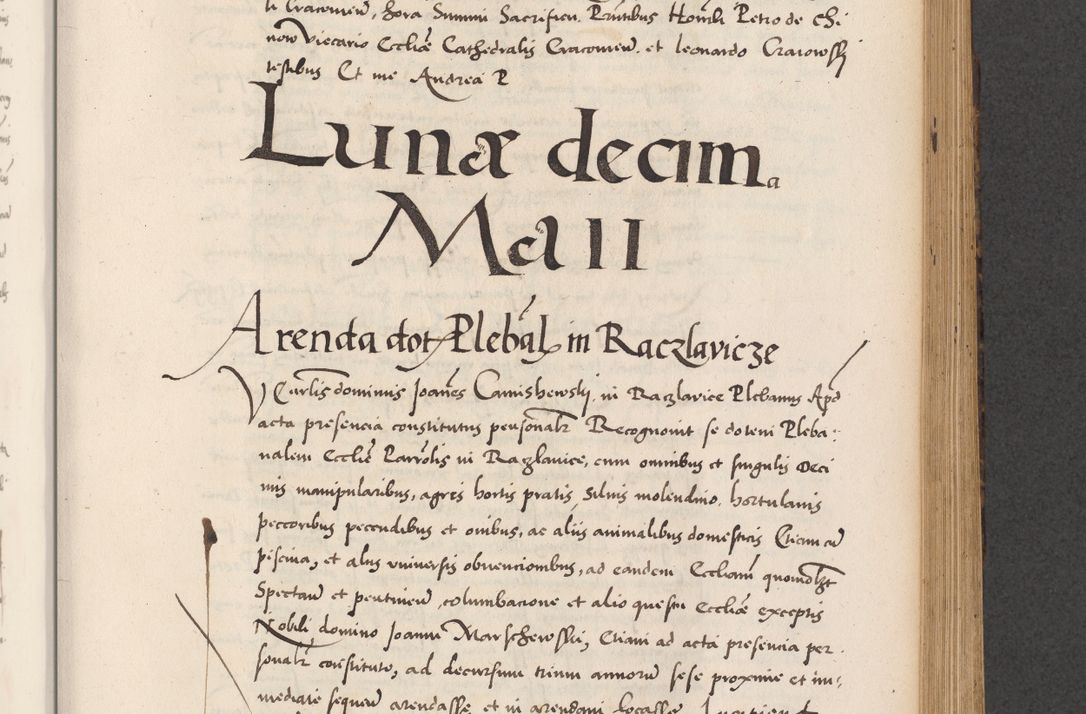 ti Cracovien, hora Summi Sacrificii, Pntibus Honbli Petro de Chi
now Viccario Eccliæ Cathedralis Cracovien. et leonardo Czarowsky
testibus Et me Andrea P
Lunæ decima
Maii
Arenda dot Plebal in Raczlavicze
V Curlis dominus Joanes Camishewskj in Raczlavice Plebanus Apd
acta presencia constitutus personalr Recognovit se dotem Pleba:
nalem Ecclie Parrolis in Raczlavice, cum omnibus et singulis Deci
mis manipularibus, agris hortis pratis Silvis molendino, hortulanis
peccoribus peccudibus et ovibus, ac aliis animalibus domesticis Etiam cu
piscina, et aliis universis obvencionibus, ad eandem Eccliam quomodlzt
Spectan et pertinen, columbacione et alio questu Eccliæ exceptis
Nobili domino Joanni Marschewsky, Etiam ad acta presencia per
sonalr constituto, ad decursum trium annoru sese proxime et im:
mediate sequen arendasse et in arendam locasse